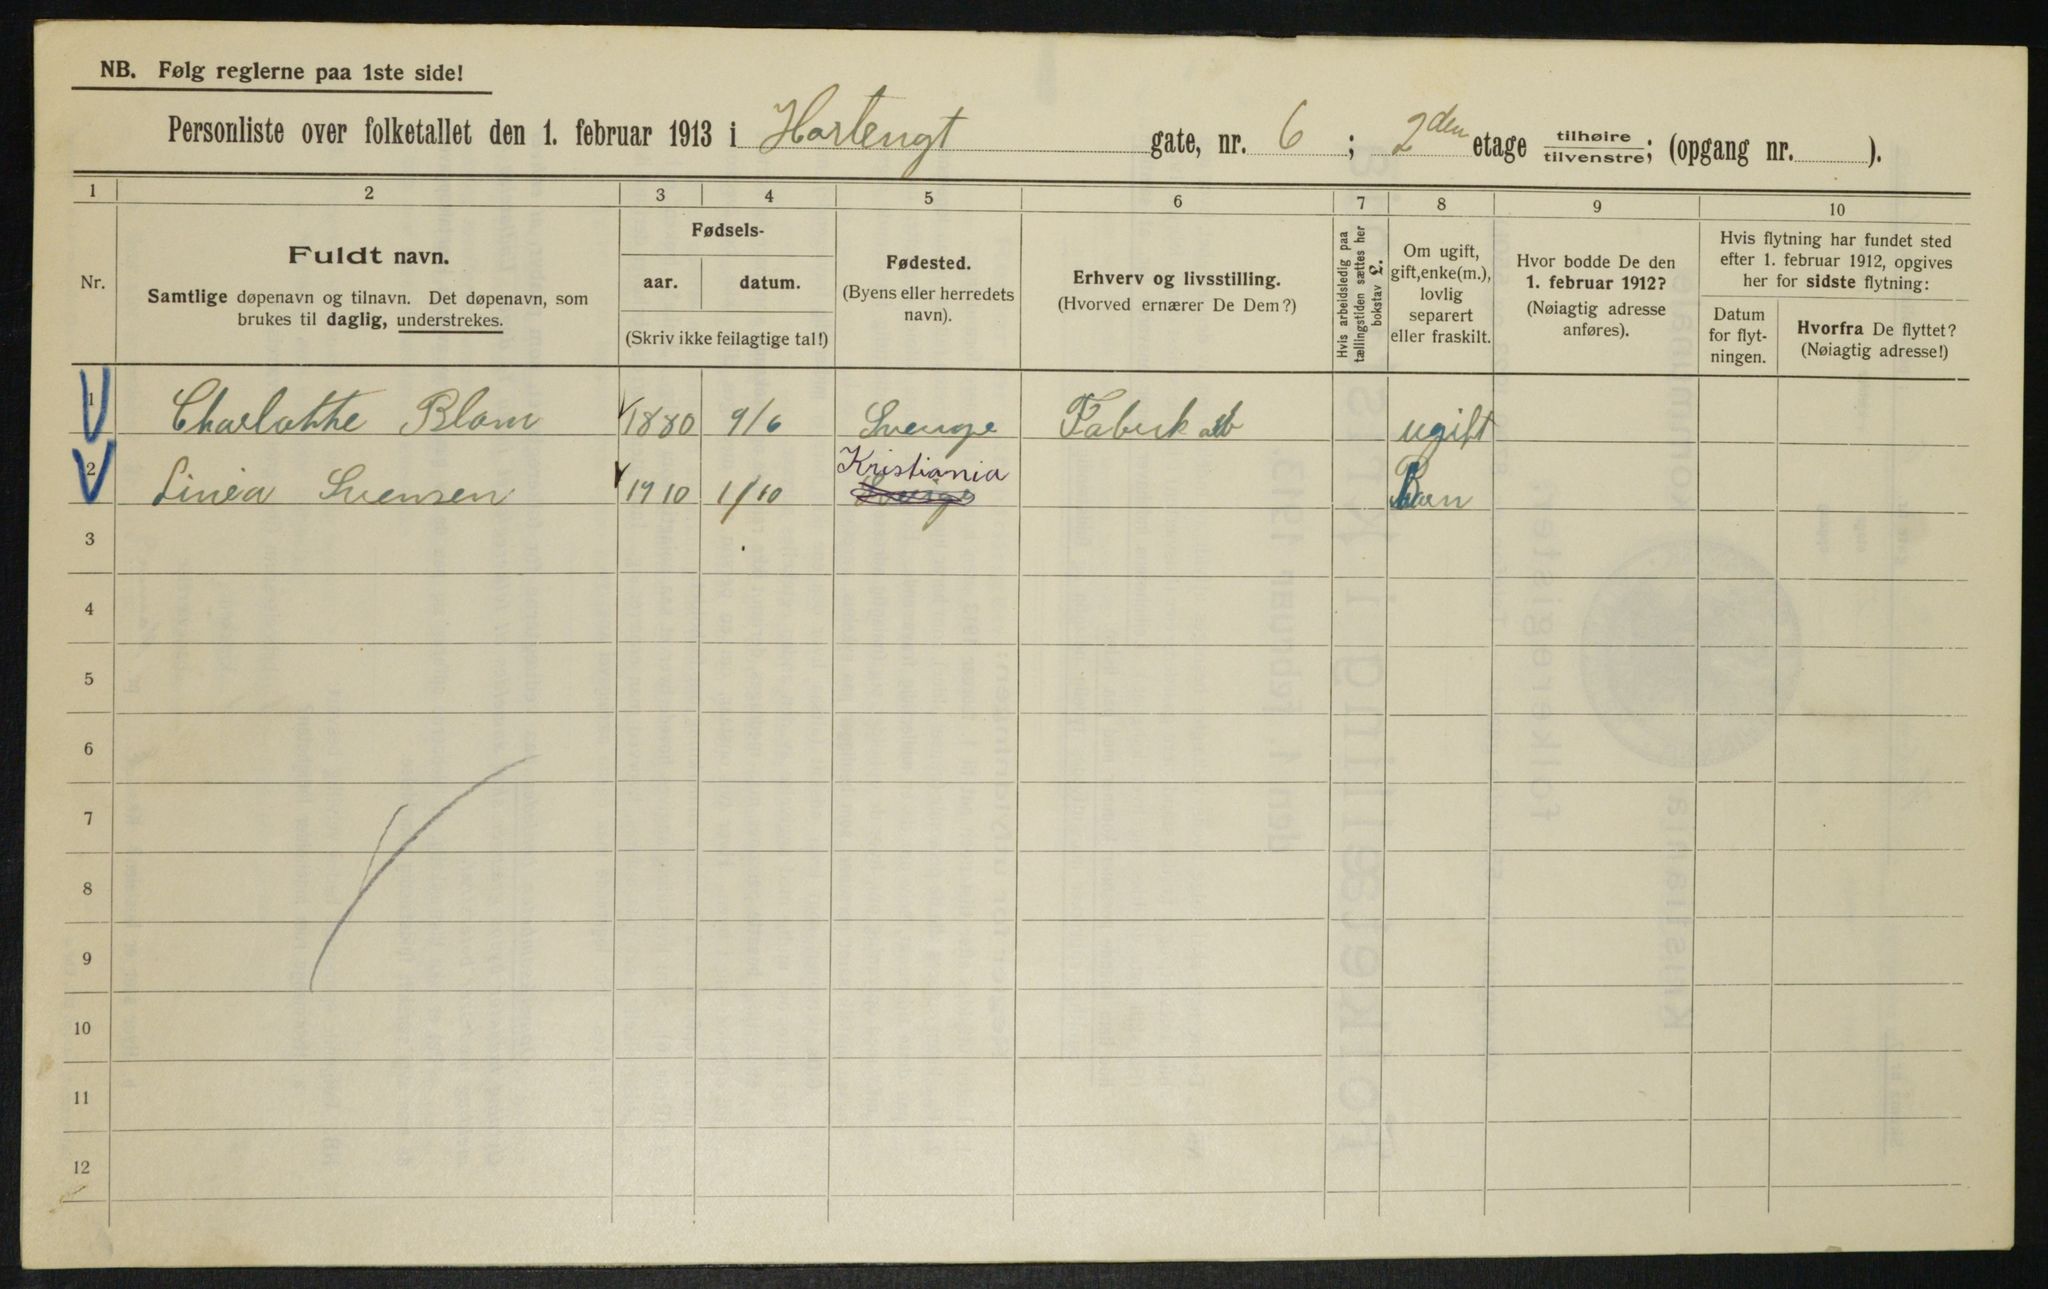 NB. Følg reglerne paa 1ste side!
Personliste over folketallet den 1. februar 1913 i Hortengt gate, nr. 6 ; 2den etage tilhøire tilvenstre; (opgang nr. ).
1 2 3 4 5 6 7 8 9 10
Nr.
Fuldt navn.
Samtlige døpenavn og tilnavn. Det døpenavn, som
brukes til daglig, understrekes.
Fødsels-
aar. datum.
(Skriv ikke feilagtige tal!)
Fødested.
(Byens eller herredets
navn).
Erhverv og livsstilling.
(Hvorved ernærer De Dem?)
Hvis arbeidsledig paa
tællingstiden sættes her
bokstav L.
Om ugift,
gift, enke(m.),
lovlig
separert
eller fraskilt.
Hvor bodde De den
1. februar 1912?
(Nøiagtig adresse
anføres).
Hvis flytning har fundet sted
efter 1. februar 1912, opgives
her for sidste flytning:
Datum
for flyt-
ningen.
Hvorfra De flyttet?
(Nøiagtig adresse!)
1 Charlotte Blom 1880 9/6 Sverige Fabrik arb ugift
Kristiania
2 Linea Svensen 1910 1/10 Sverige Barn
3
4
5
6
7
8
9
10
11
12